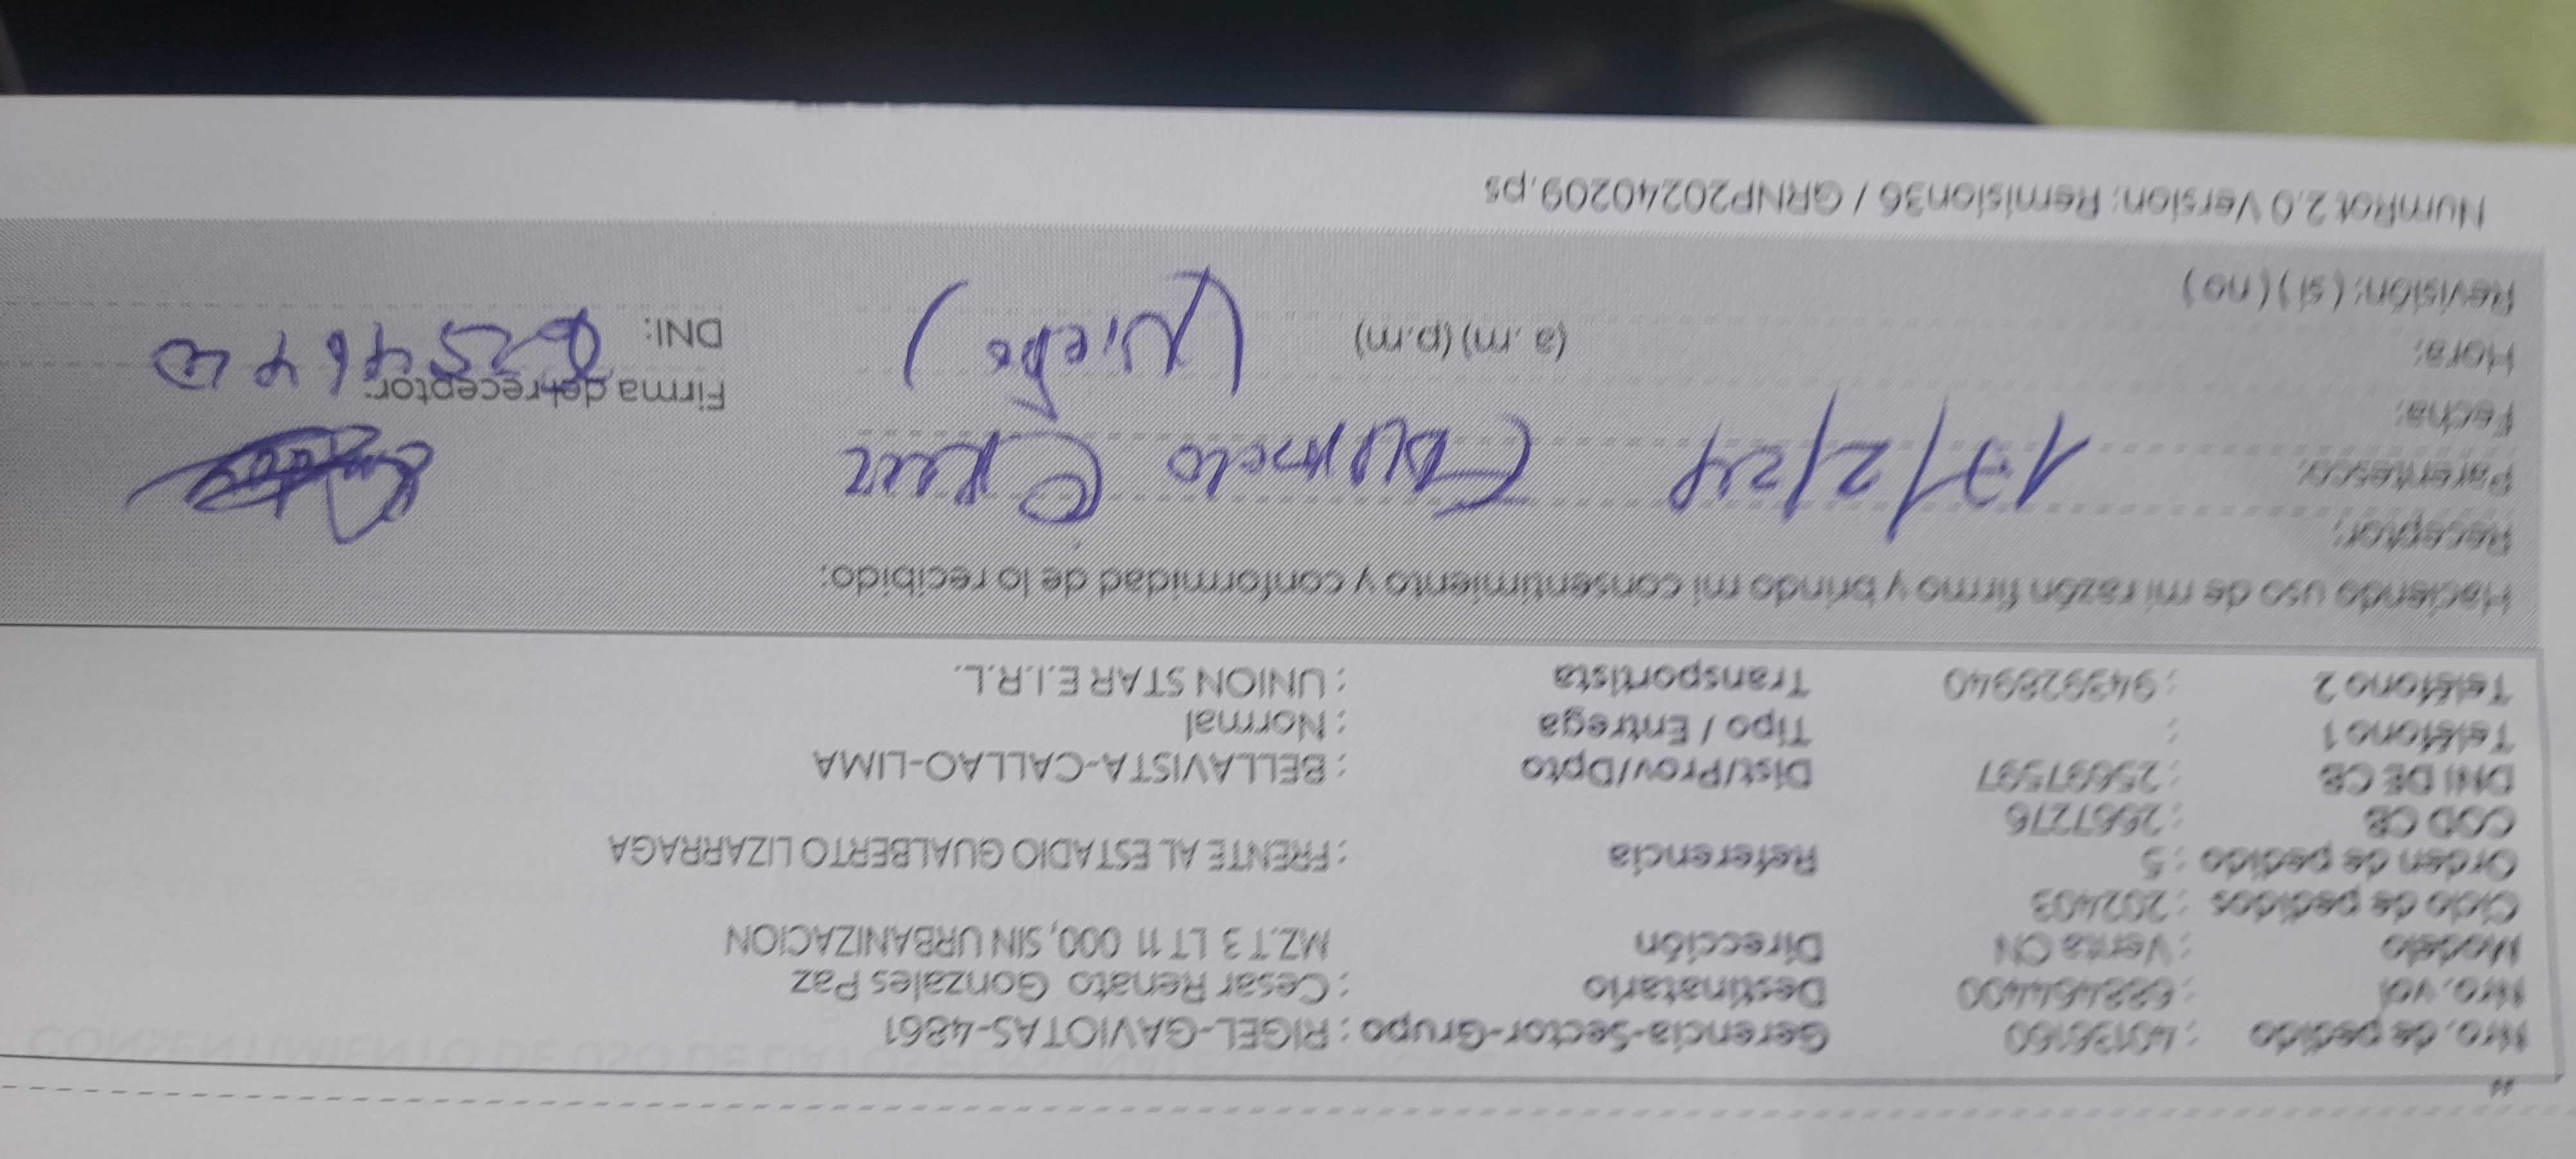 44
Nro. de pedido : 40136160 Gerencia-Sector-Grupo : RIGEL-GAVIOTAS-4861
Nro. vol : 6884644400 Destinatario : Cesar Renato Gonzales Paz
Modelo : Venta CN Dirección MZ.T 3 LT 11 000, SIN URBANIZACION
Ciclo de pedidos : 202403
Orden de pedido : 5 Referencia : FRENTE AL ESTADIO GUALBERTO LIZARRAGA
COD CB : 2667276
DNI DE CB : 25697597 Dist/Prov/Dpto : BELLAVISTA-CALLAO-LIMA
Teléfono 1 : Tipo / Entrega : Normal
Teléfono 2 : 943928940 Transportista : UNION STAR E.I.R.L.
Haciendo uso de mi razón firmo y brindo mi consentimiento y conformidad de lo recibido:
Receptor:
Parentesco:
17/2/24
Fecha: Firma del receptor:
Hora: (a .m) (p.m) DNI:
Revisión: ( si ) ( no )
NumRot 2.0 Version: Remision36 / GRNP20240209.ps